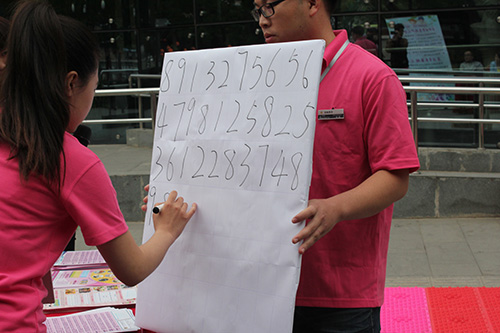 8913275656
4798125825
3612283748
98